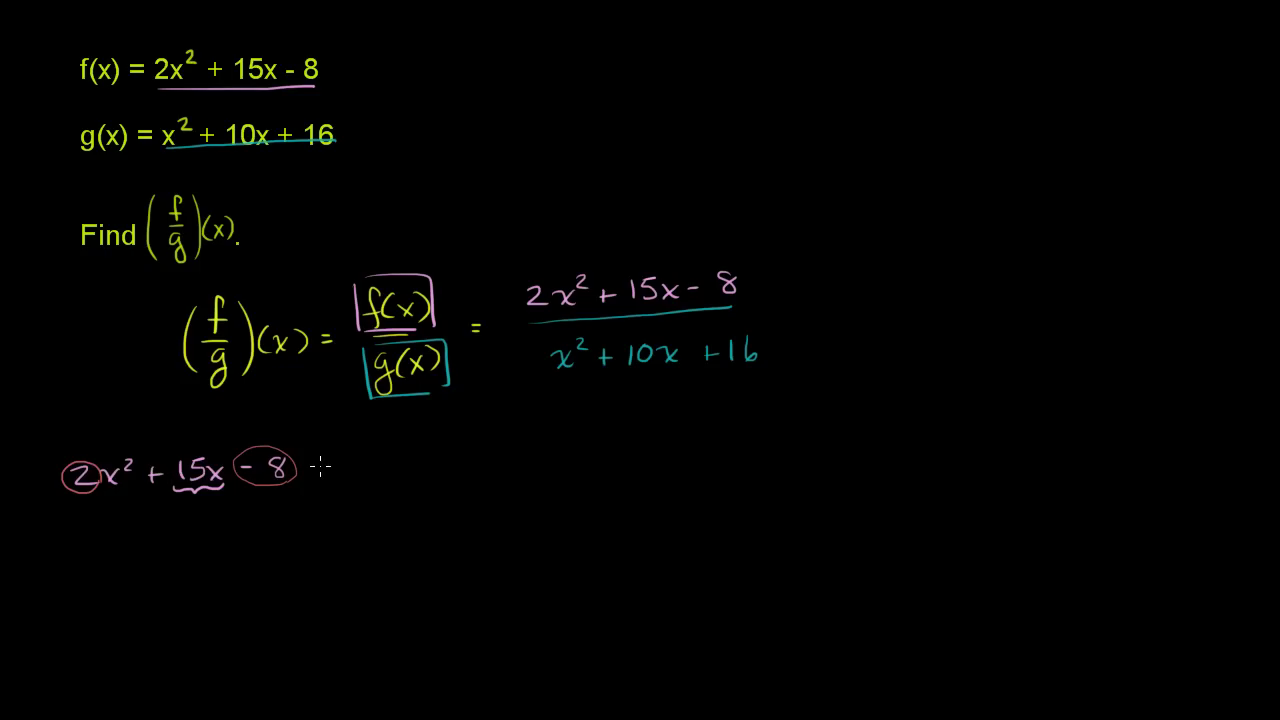 f(x) = 2x² + 15x - 8
g(x) = x² + 10x + 16
Find (f/g)(x).
(f/g)(x) = f(x)/g(x) = (2x² + 15x - 8)/(x² + 10x + 16)
2x² + 15x - 8